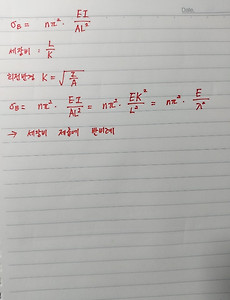 σ_B = nπ² · EI/AL²
세장비 : L/K
회전반경 K = √(I/A)
σ_B = nπ² · EI/AL² = nπ² · EK²/L² = nπ² · E/λ²
→ 세장비 제곱에 반비례